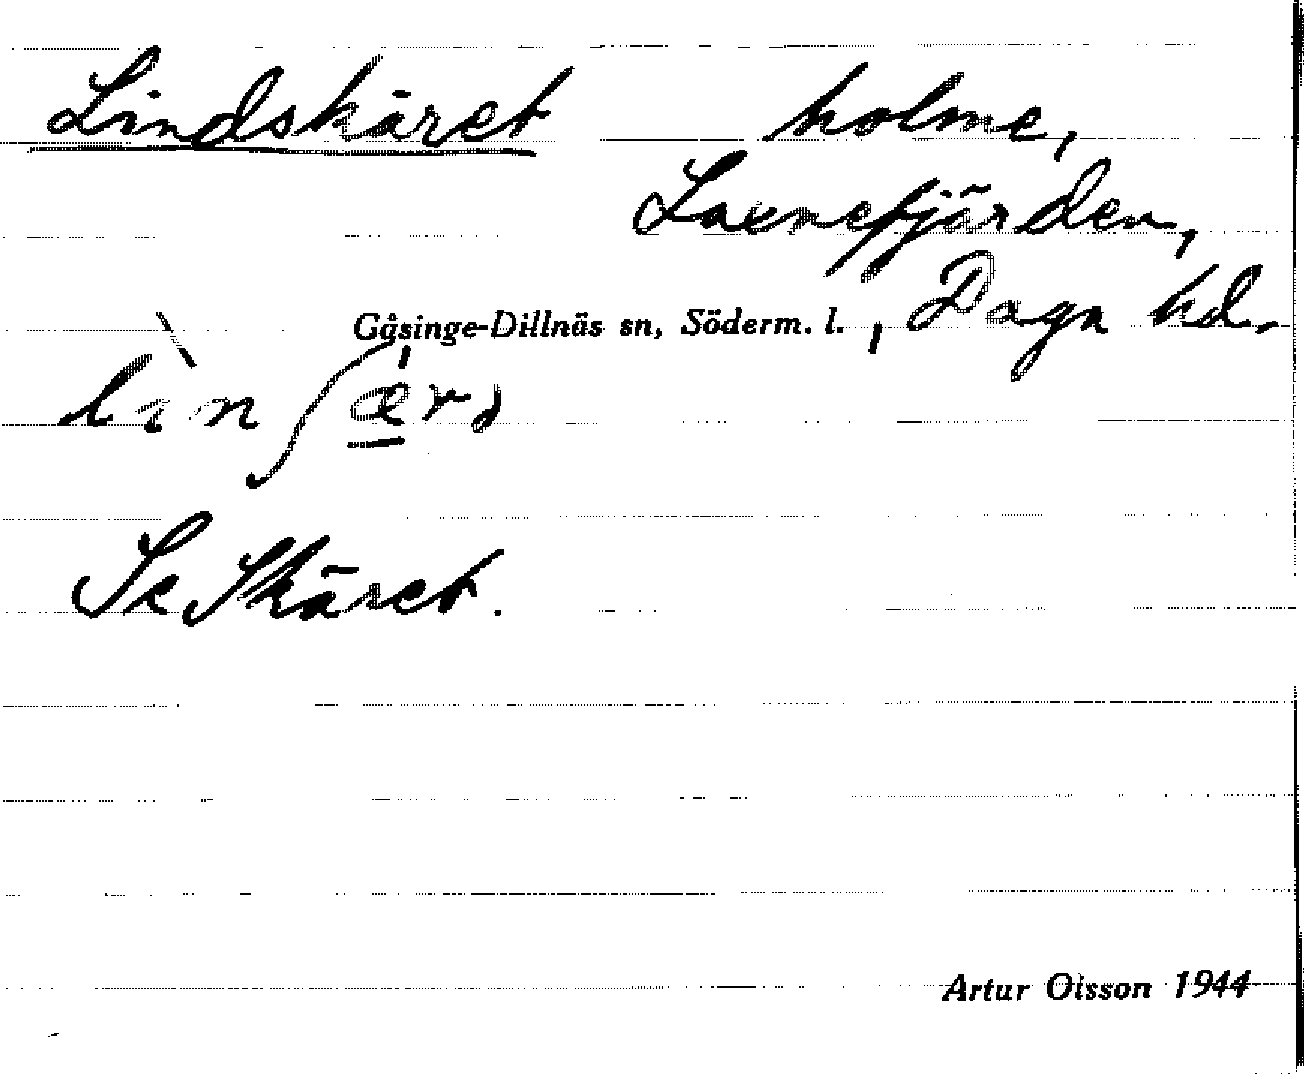 Lindskäret holme,
Laxnefjärden,
Gåsinge-Dillnäs sn, Söderm. l., Daga hd.
Se Skäret.
Artur Olsson 1944